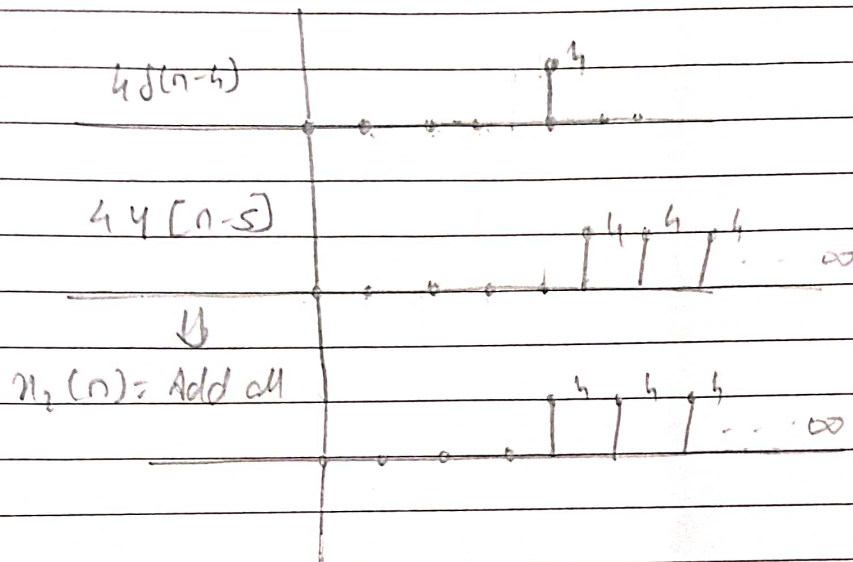 4
4δ(n-4)
4 u [n-5]
4 4 4 ... ∞
⇓
x₂(n) = Add all
4 4 4 .... ∞